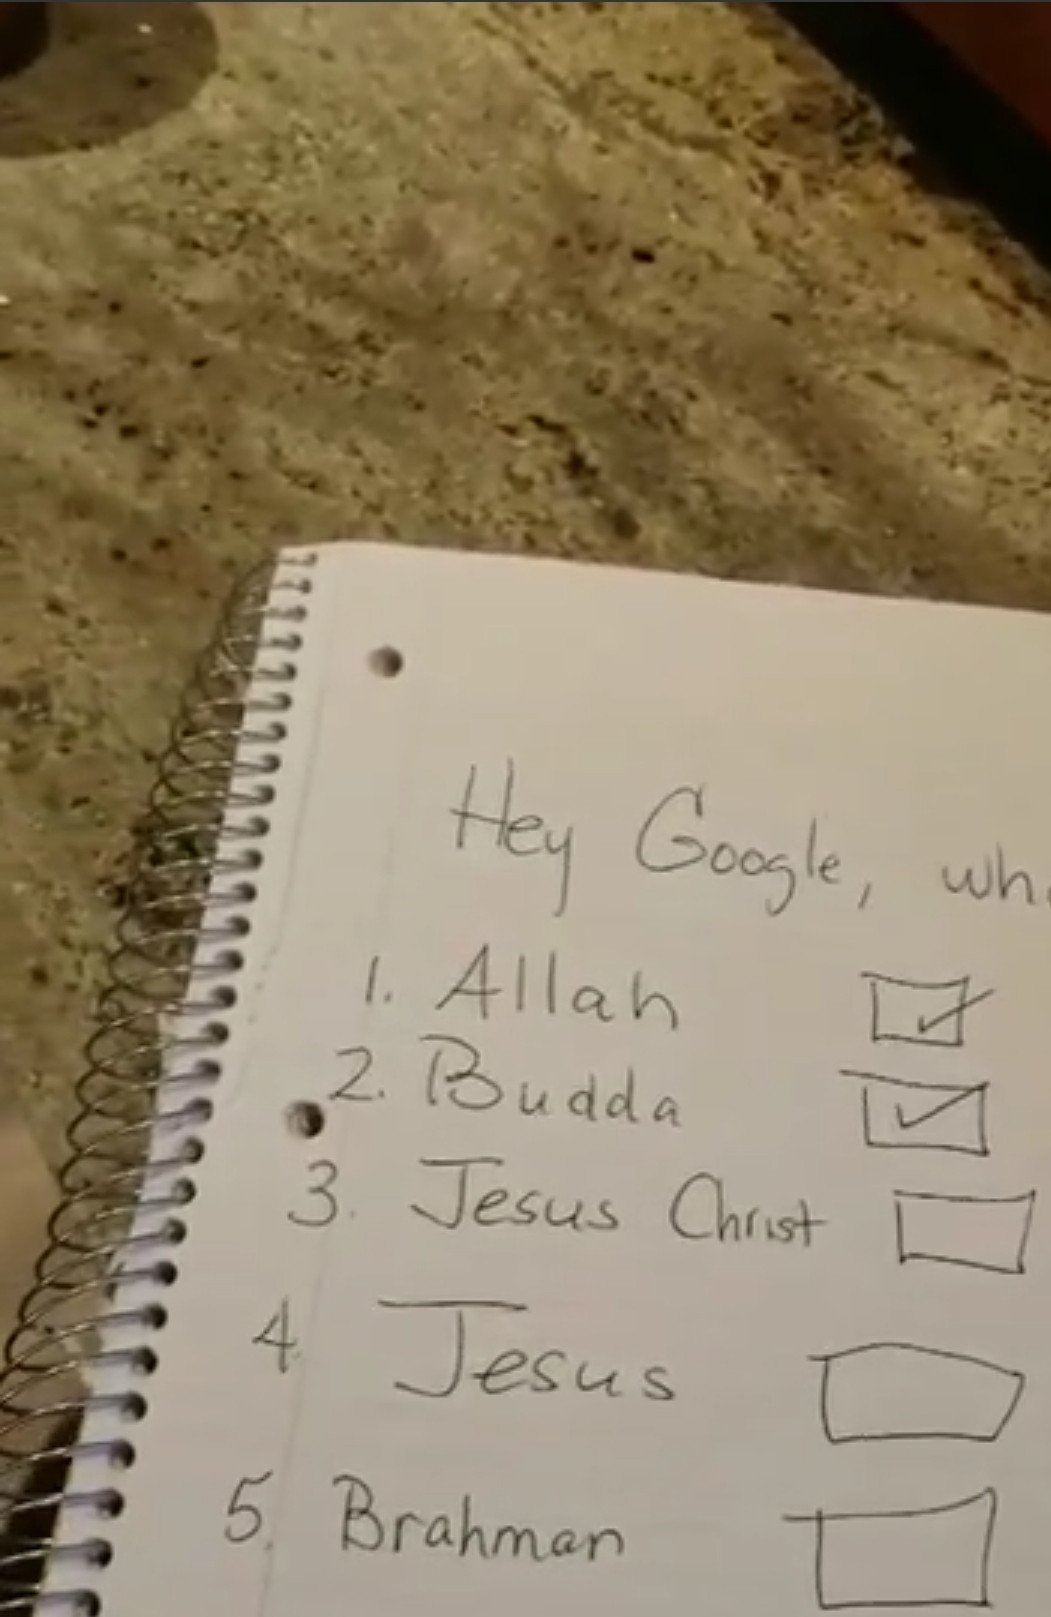 Hey Google,
1. Allah ☑
2. Budda ☑
3. Jesus Christ ☐
4. Jesus ☐
5. Brahman ☐